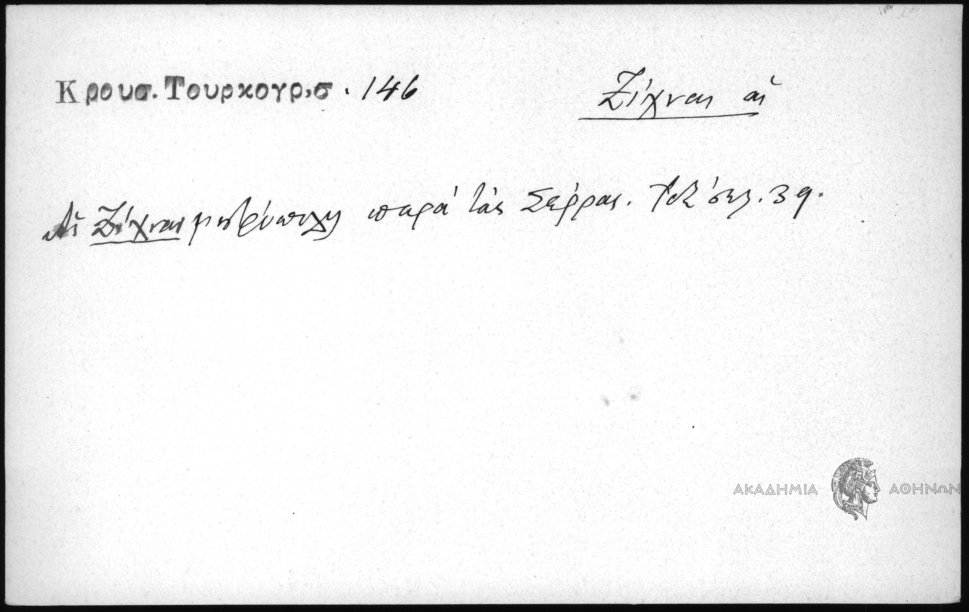 Κρουσ. Τουρκογρ,σ . 146
Ζίχναι αἱ
Αἱ Ζίχναι μητρόπολη παρά τὰς Σέρρας. σελ. 39.
ΑΚΑΔΗΜΙΑ ΑΘΗΝΩΝ